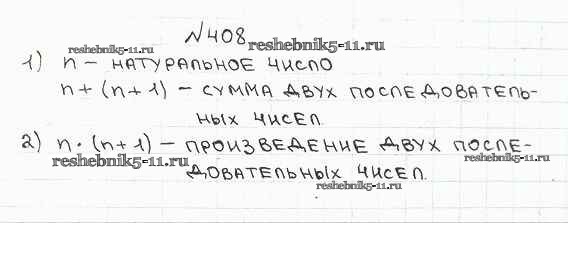 №408
reshebnik5-11.ru reshebnik5-11.ru
1) n – НАТУРАЛЬНОЕ ЧИСЛО
n + (n + 1) – СУММА ДВУХ ПОСЛЕДОВАТЕЛЬ-
НЫХ ЧИСЕЛ.
2) n · (n + 1) – ПРОИЗВЕДЕНИЕ ДВУХ ПОСЛЕ-
reshebnik5-11.ru reshebnik5-11.ru
ДОВАТЕЛЬНЫХ ЧИСЕЛ.
reshebnik5-11.ru